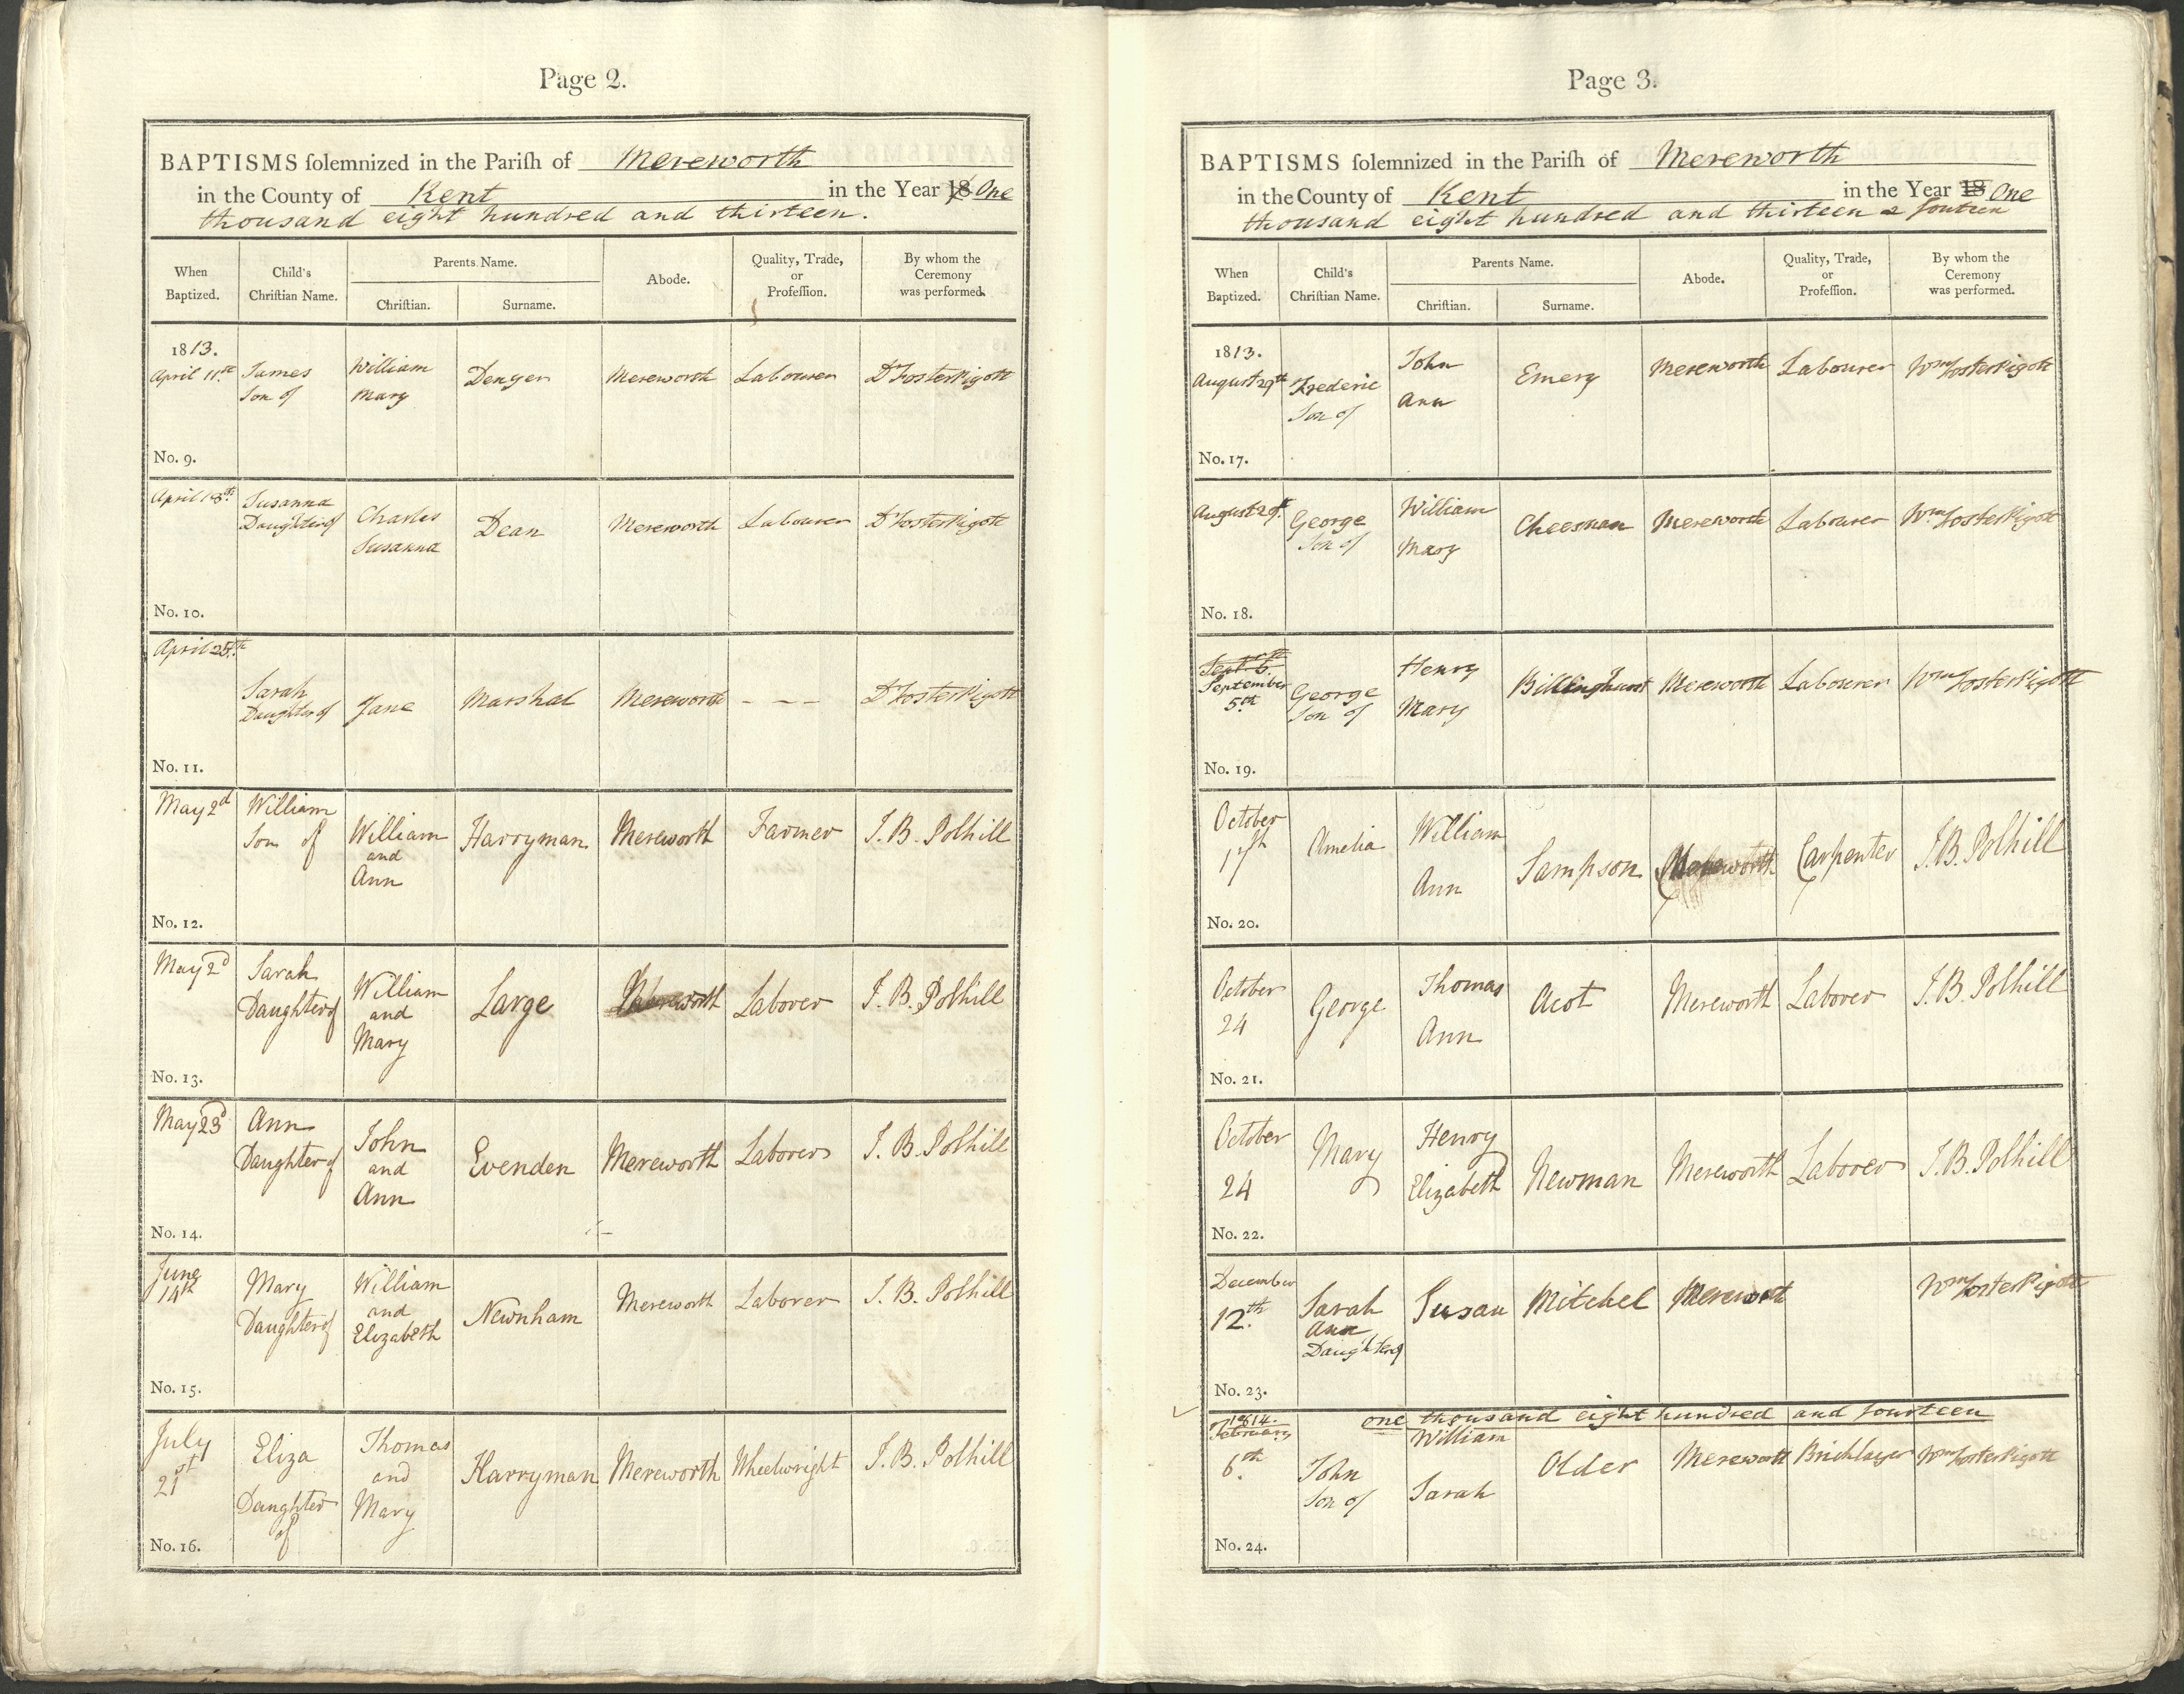 Page 2.
BAPTISMS ſolemnized in the Pariſh of Mereworth
in the County of Kent in the Year 18 One
thousand eight hundred and thirteen.
When Baptized. Child's Chriſtian Name. Parents Name. Chriſtian. Surname. Abode. Quality, Trade, or Profeſſion. By whom the Ceremony was performed.
1813.
April 11th James Son of William Mary Denyer Mereworth Labourer Dr Foster Pigott
No. 9.
April 18th Susanna Daughter of Charles Susanna Dean Mereworth Labourer Dr Foster Pigott
No. 10.
April 25th Sarah Daughter of Jane Marshal Mereworth - - - Dr Foster Pigott
No. 11.
May 2d William Son of William and Ann Harryman Mereworth Farmer J. B. Polhill
No. 12.
May 2d Sarah Daughter of William and Mary Large Mereworth Laborer J. B. Polhill
No. 13.
May 23d Ann Daughter of John and Ann Evenden Mereworth Laborer J. B. Polhill
No. 14.
June 14th Mary Daughter of William and Elizabeth Newnham Mereworth Laborer J. B. Polhill
No. 15.
July 21st Eliza Daughter of Thomas and Mary Harryman Mereworth Wheelwright J. B. Polhill
No. 16.
Page 3.
BAPTISMS ſolemnized in the Pariſh of Mereworth
in the County of Kent in the Year 18 One
thousand eight hundred and thirteen & fourteen
When Baptized. Child's Chriſtian Name. Parents Name. Chriſtian. Surname. Abode. Quality, Trade, or Profeſſion. By whom the Ceremony was performed.
1813.
August 29th Frederic Son of John Ann Emery Mereworth Labourer Wm Foster Pigott
No. 17.
August 29th George Son of William Mary Cheesman Mereworth Labourer Wm Foster Pigott
No. 18.
Sept. 6th September 5th George Son of Henry Mary Billinghurst Mereworth Labourer Wm Foster Pigott
No. 19.
October 17th Amelia William Ann Sampson Mereworth Carpenter J. B. Polhill
No. 20.
October 24 George Thomas Ann Acot Mereworth Laborer J. B. Polhill
No. 21.
October 24 Mary Henry Elizabeth Newman Mereworth Laborer J. B. Polhill
No. 22.
December 12th Sarah Ann Daughter of Susan Mitchel Mereworth Wm Foster Pigott
No. 23.
1814. one thousand eight hundred and fourteen
February 6th John Son of William Sarah Older Mereworth Bricklayer Wm Foster Pigott
No. 24.